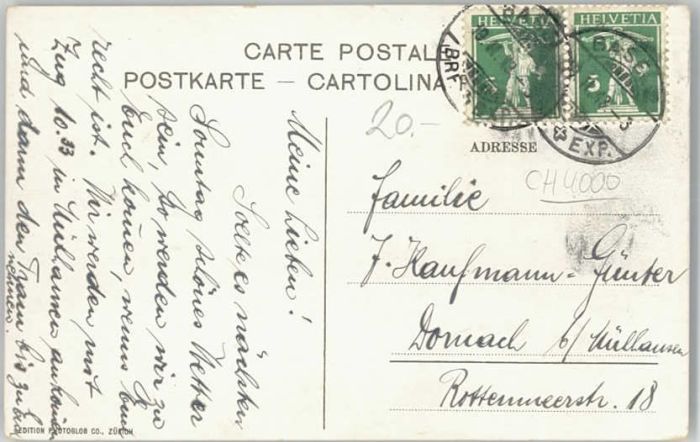 CARTE POSTALE
POSTKARTE – CARTOLINA
HELVETIA
HELVETIA
5
BASEL
BRF. EXP.
20.-
ADRESSE
CH 4000
Meine Lieben!
Sollte es nächsten
Sonntag schönes Wetter
sein, so werden wir zu
Euch kommen, wenns Euch
recht ist. Wir werden mit
Zug 10.33 in Mülhausen ankommen
und dann den Tram bis zu Euch
nehmen.
Familie
J. Kaufmann-Günter
Dornach b/Mülhausen
Rottenmeerstr. 18
EDITION PHOTOGLOB CO., ZÜRICH